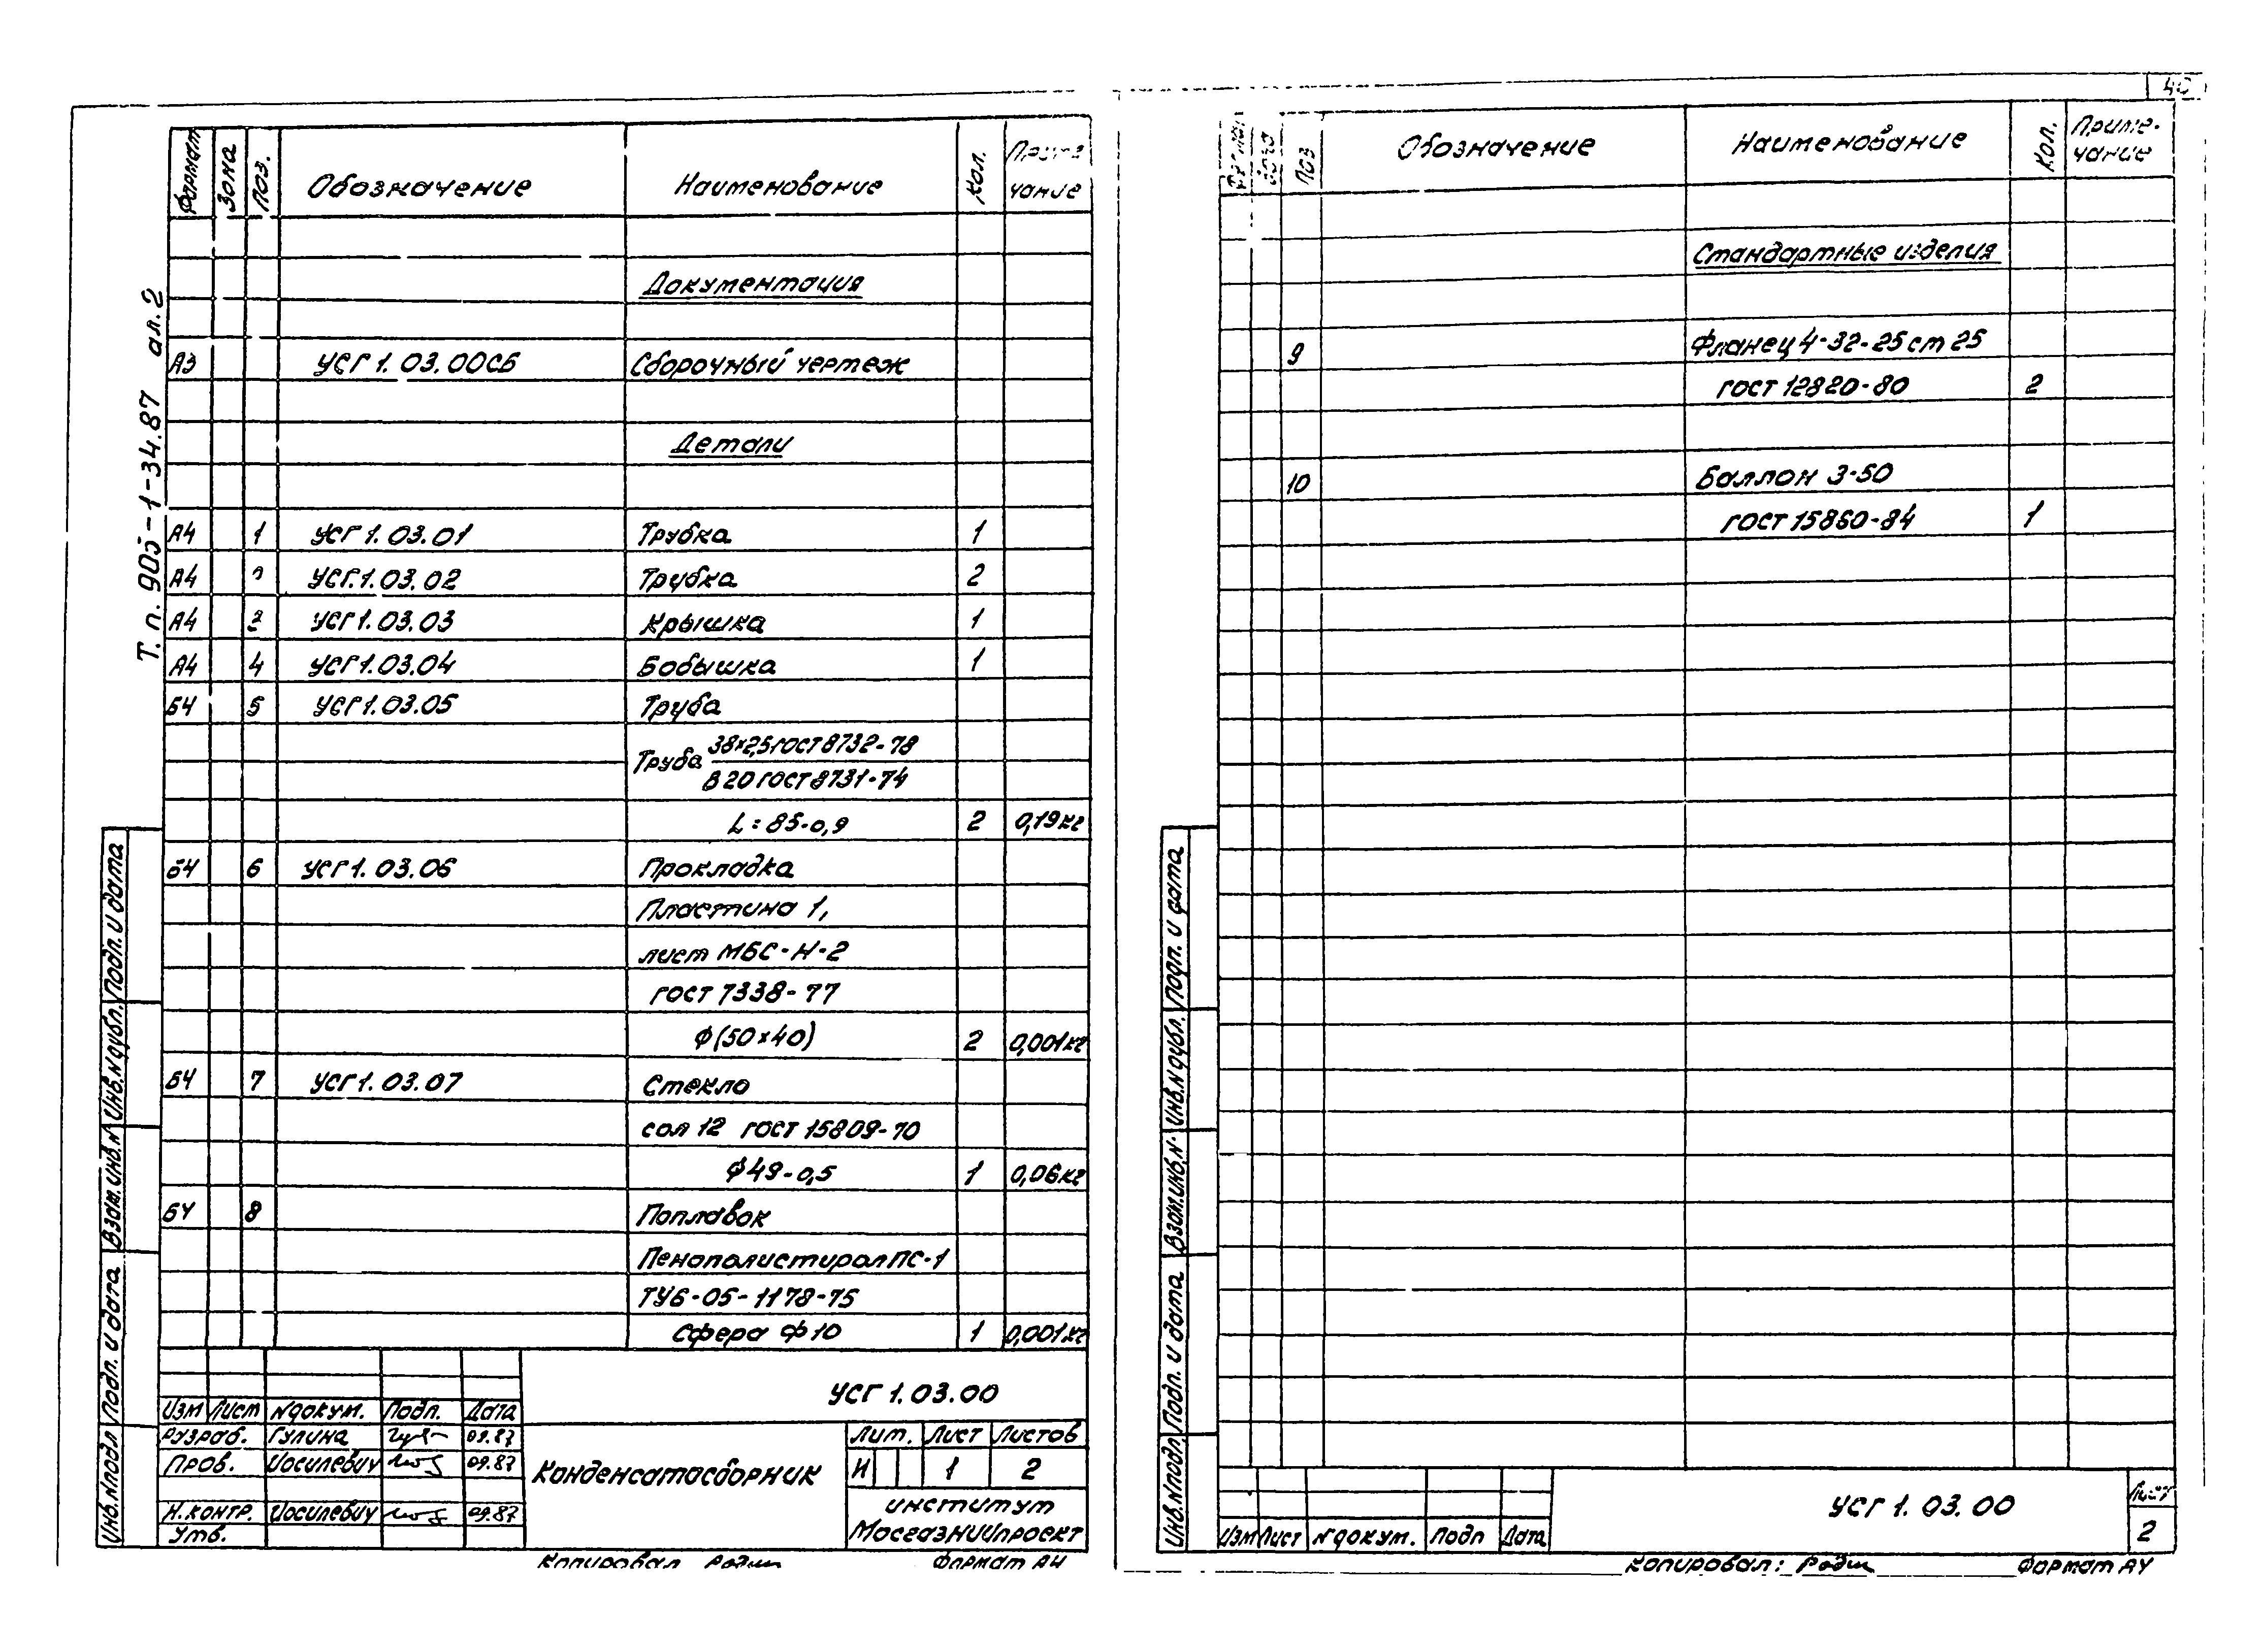 Т. п. 905-1-34.87 ал. 2
Формат Зона Поз. Обозначение Наименование Кол. Примечание
Документация
А3 УСГ 1.03.00СБ Сборочный чертеж
Детали
А4 1 УСГ 1.03.01 Трубка 1
А4 2 УСГ.1.03.02 Трубка 2
А4 3 УСГ 1.03.03 Крышка 1
А4 4 УСГ 1.03.04 Бобышка 1
БЧ 5 УСГ 1.03.05 Труба
Труба 38×2,5 ГОСТ 8732-78
В 20 ГОСТ 8731-74
L=85-0,9 2 0,19кг
БЧ 6 УСГ 1.03.06 Прокладка
Пластина 1,
лист МБС-Н-2
ГОСТ 7338-77
Ф(50×40) 2 0,001кг
БЧ 7 УСГ 1.03.07 Стекло
сол 12 ГОСТ 15809-70
Ф49-0,5 1 0,06кг
БЧ 8 Поплавок
Пенополистирол ПС-1
ТУ6-05-1178-75
Сфера Ф10 1 0,001кг
Инв.N подл Подп. и дата Взам.инв.N Инв.N дубл. Подп. и дата
УСГ 1.03.00
Изм Лист N докум. Подп. Дата
Разраб. Гулина 09.87
Пров. Иосилевич 09.87
Н.контр. Иосилевич 09.87
Утв.
Конденсатосборник
Лит. Лист Листов
И 1 2
институт
Мосгазниипроект
Копировал Родин Формат А4
40
Формат Зона Поз Обозначение Наименование Кол. Примечание
Стандартные изделия
9 Фланец 4-32-25 ст 25
ГОСТ 12820-80 2
10 Баллон 3-50
ГОСТ 15860-84 1
Инв.N подл Подп. и дата Взам.инв.N Инв.N дубл. Подп. и дата
Изм Лист N докум. Подп Дата
УСГ 1.03.00
Лист
2
Копировал: Родин Формат А4